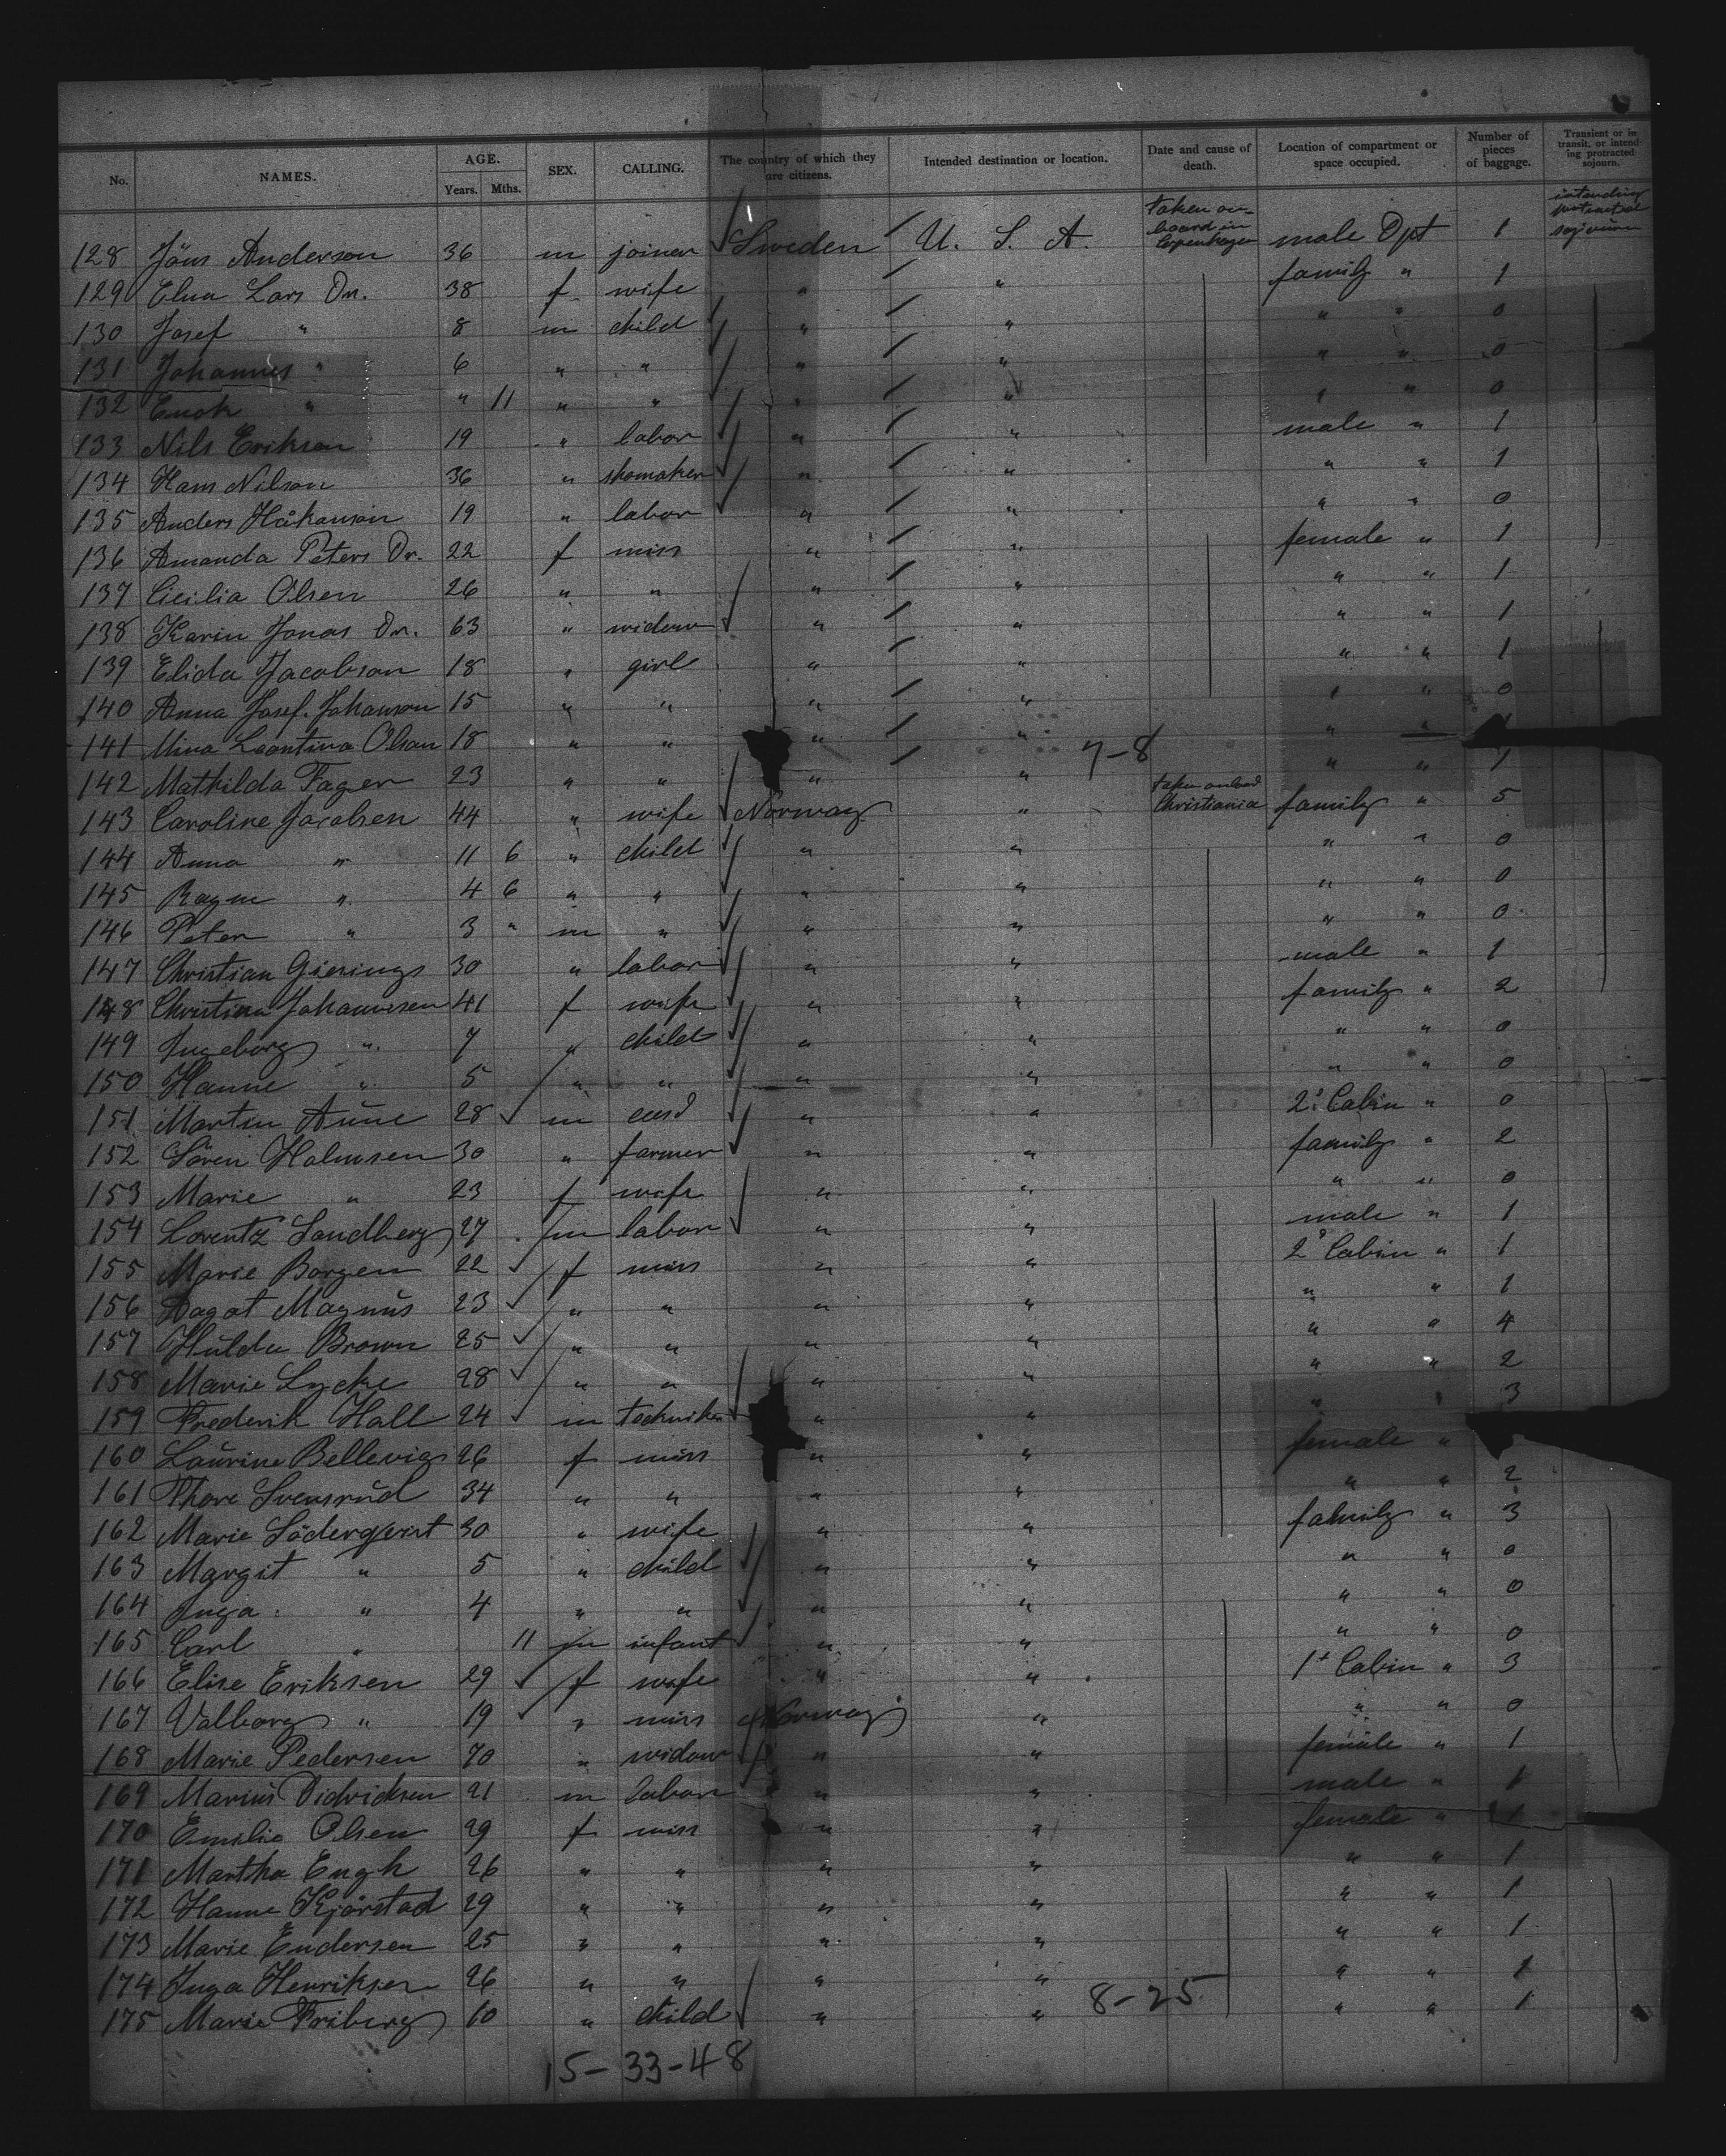 No. NAMES. AGE. Years. Mths. SEX. CALLING. The country of which they are citizens. Intended destination or location. Date and cause of death. Location of compartment or space occupied. Number of pieces of baggage. Transient or in transit, or intending protracted sojourn.
128 Jöns Anderson 36 m joiner Sweden U. S. A. taken on-board in Copenhagen male Dpt 1 intending protracted sojourn
129 Elna Lars Dr. 38 f wife " " family " 1
130 Josef " 8 m child " " " " 0
131 Johannes " 6 " " " " " " 0
132 Enok " " 11 " " " " " " 0
133 Nils Erikson 19 " labor " " male " 1
134 Hans Nilson 36 " shomaker " " " " 1
135 Anders Håkanson 19 " labor " " " " 0
136 Amanda Peters Dr. 22 f miss " " female " 1
137 Cicilia Olsen 26 " " " " " " 1
138 Karin Jonas Dr. 63 " widow " " " " 1
139 Elida Jacobson 18 " girl " " " " 1
140 Anna Josef. Johanson 15 " " " " " " 0
141 Mina Leontina Olson 18 " " " " " "
142 Mathilda Fager 23 " " " " 7-8 " " 1
143 Caroline Jacobsen 44 " wife Norway " taken onboard Christiania family " 5
144 Anna " 11 6 " child " " " " 0
145 Ragne " 4 6 " " " " " " 0
146 Peter " 3 " m " " " " " 0
147 Christian Giesings 30 " labor " " male " 1
148 Christina Johannesen 41 f wife " " family " 2
149 Ingeborg " 7 " child " " " " 0
150 Hanne " 5 " " " " " " 0
151 Martin Aune 28 m " " 2' Cabin " 0
152 Sören Halmsen 30 " farmer " " family " 2
153 Marie " 23 f wife " " " " 0
154 Lorentz Sandberg 27 m labor " " male " 1
155 Marie Borgen 22 f miss " " 2' Cabin " 1
156 Aagot Magnus 23 " " " " " " 1
157 Hulda Brown 25 " " " " " " 4
158 Marie Lycke 28 " " " " " " 2
159 Frederik Hall 24 m tekniker " " " " 3
160 Laurine Bellevig 26 f miss " " female "
161 Thore Svensrud 34 " " " " " " 2
162 Marie Söderqvist 30 " wife " " family " 3
163 Margit " 5 " child " " " " 0
164 Inga " 4 " " " " " " 0
165 Carl " 11 m infant " " " " 0
166 Elise Eriksen 29 f wife " " 1st Cabin " 3
167 Valborg " 19 " miss Norway " " " 0
168 Marie Pedersen 70 " widow " " female " 1
169 Marius Didricksen 21 m labor " " male " 1
170 Emilie Olsen 29 f miss " " female " 1
171 Martha Engh 26 " " " " " " 1
172 Hanne Kjørstad 29 " " " " " " 1
173 Marie Endersen 25 " " " " " " 1
174 Inga Henriksen 26 " " " " 8-25 " " 1
175 Marie Friberg 10 " child " " " " 1
15-33-48